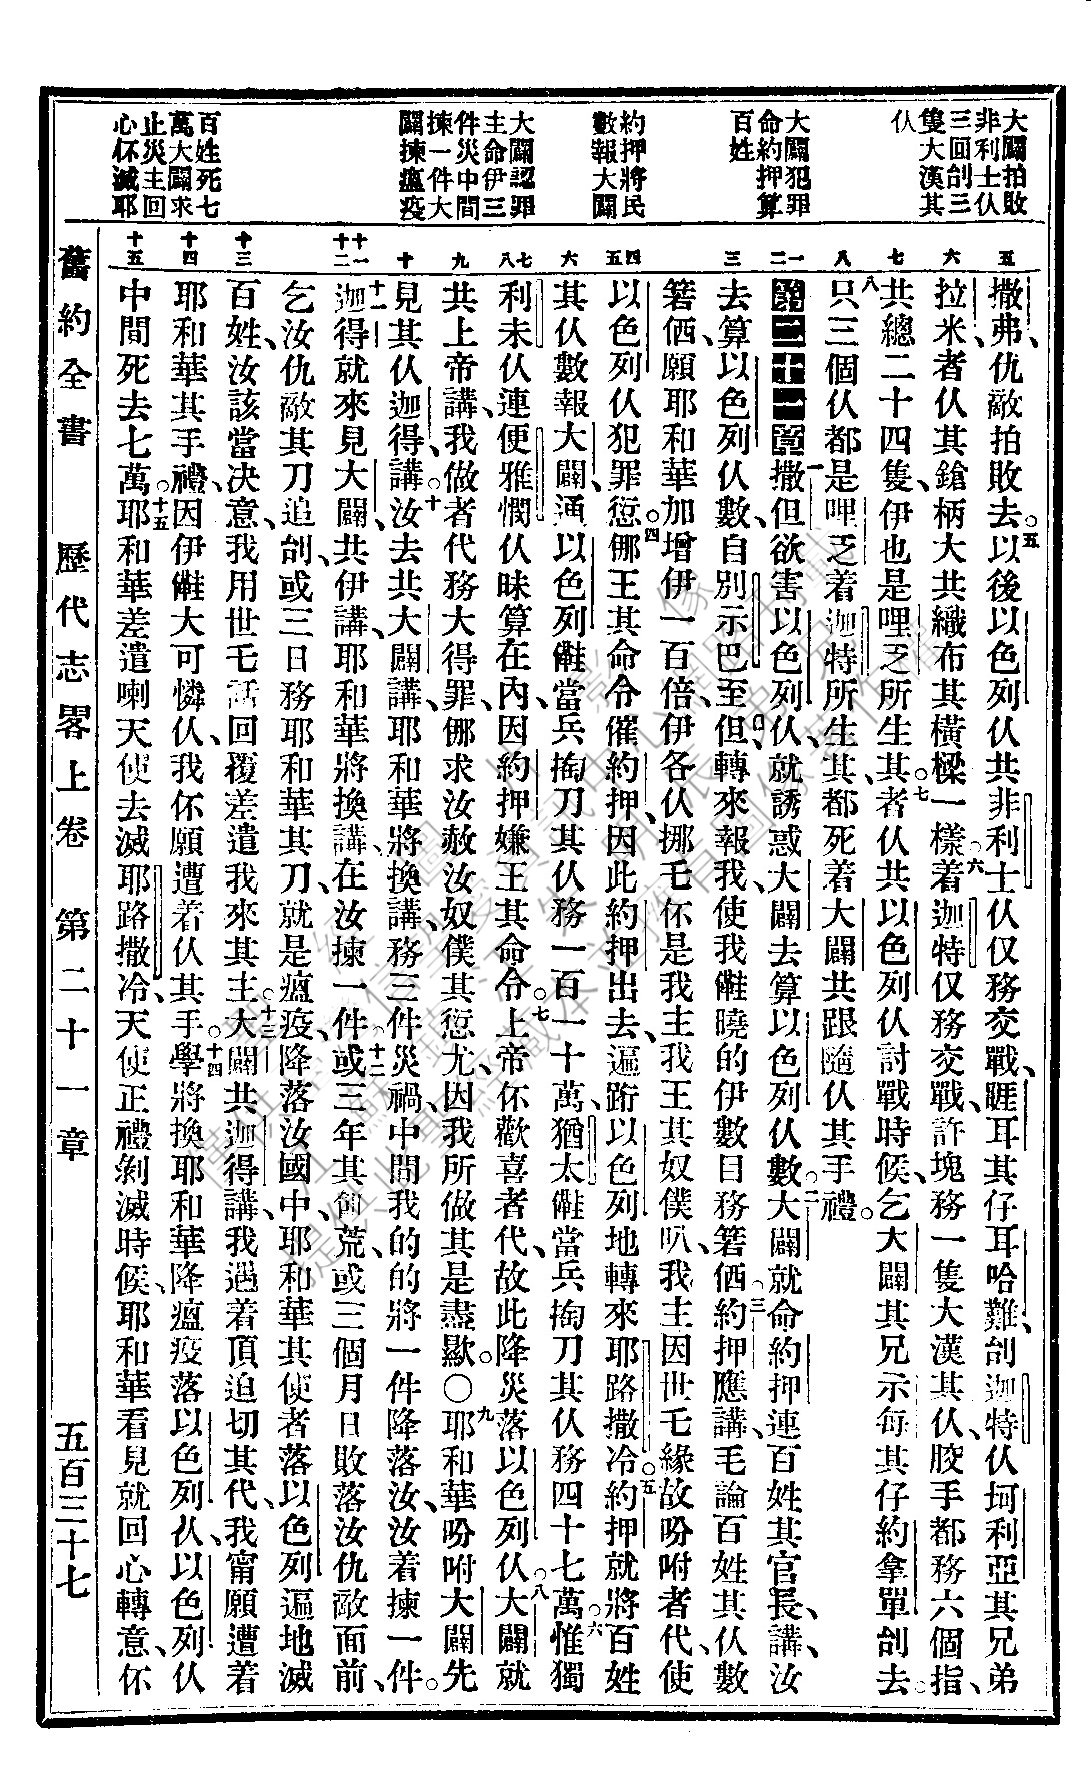 大闢拍敗
非利士伙
三回刣三
隻大漢其
伙
大闢犯罪
命約押算
百姓
約押將民
數報大闢
大闢認罪
主命伊三
件災中間
揀一件大
闢揀瘟疫
百姓死七
萬大闢求
止災主回
心伓滅耶
五
撒弗仇敵拍敗去。五以後以色列仈共非利士仈仅務交戰、睚耳其仔耳哈難、刣迦特仈坷利亞其兄弟
六
拉米、者仈其鎗柄大共織布其橫樑一樣。六着迦特仅務交戰、許塊務一隻大漢其仈、骹手都務六個指、
七
共總二十四隻、伊也是哩乏所生其。七者仈共以色列仈討戰時候、乞大闢其兄示每其仔約拿單刣去。
八
八只三個仈都是哩乏着迦特所生其、都死着大闢共跟隨仈其手禮。
一二
第二十一章 一撒但欲害以色列仈、就誘惑大闢去算以色列仈數。二大闢就命約押連百姓其官長、講、汝
三
去算以色列仈數、自別示巴至但、轉來報我、使我䧹曉的伊數目務箬倠。三約押應講、毛論百姓其仈數
箬倠、願耶和華加增伊一百倍、伊各仈挪乇伓是我主我王其奴僕叭、我主因世乇緣故吩咐者代、使
四五
以色列仈犯罪愆。四㑚王其命令催約押、因此約押出去、遍跡以色列地轉來耶路撒冷。五約押就將百姓
六
其仈數報大闢、通以色列䧹當兵掏刀其仈務一百一十萬、猶太䧹當兵掏刀其仈務四十七萬。六惟獨
七八
利未仈連便雅憫仈昧算在內、因約押嫌王其命令。七上帝伓歡喜者代、故此降災落以色列仈。八大闢就
九
共上帝講、我做者代務大得罪、㑚求汝赦汝奴僕其愆尤、因我所做其是盡歇。〇九耶和華吩咐大闢先
十
見其仈迦得、講、十汝去共大闢講、耶和華將換講、務三件災禍、中間我的的將一件降落汝、汝着揀一件。
十一十二
十一迦得就來見大闢、共伊講、耶和華將換講、在汝揀一件、十二或三年其飢荒、或三個月日敗落汝仇敵面前、
乞汝仇敵其刀追刣、或三日務耶和華其刀、就是瘟疫降落汝國中、耶和華其使者落以色列遍地滅
十三
百姓、汝該當决意、我用世乇話回覆差遣我來其主。十三大闢共迦得講、我遇着頂迫切其代、我甯願遭着
十四
耶和華其手禮、因伊䧹大可憐仈、我伓願遭着仈其手。十四學將換耶和華降瘟疫落以色列仈、以色列仈
十五
中間死去七萬。十五耶和華差遣喇天使去滅耶路撒冷、天使正禮剝滅時候、耶和華看見就回心轉意、伓
舊約全書 歷代志畧上卷 第二十一章 五百三十七